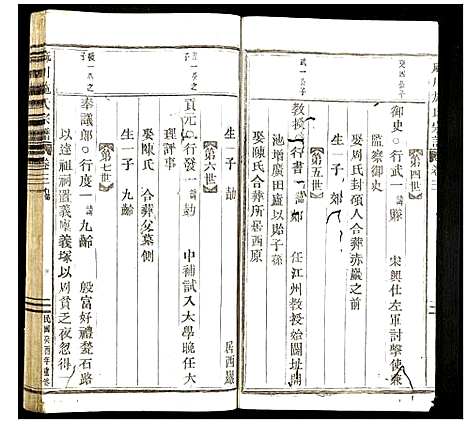 第四世
御史○行武一 諱䲧 宋興仕左軍討擊使兼
監察御史
娶周氏封碩人合葬赤巖之前
生一子 郊
第五世
武一公子
教授○行書一 諱郊 任江州教授始闢址開
池增廣田廬以貽子孫
娶陳氏合葬所居西原
生一子 勋 居西巖
第六世
貢元○行發一 諱勋 中補試入太學晚任大
理評事
娶陳氏 合葬父墓側
生一子 九齡
第七世
發一公之子
奉議郎○行度一 諱九齡 殷富好禮甃石路
以達祖祠置義廪義塚以周貧乏夜忽得
民國癸酉年重修